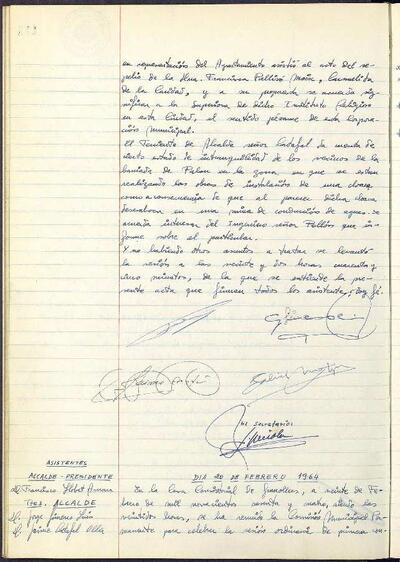 en representación del Ayuntamiento asistió al acto del se-
pelio de la Hna. Francisca Pellisó Mañé, Carmelita
de la Caridad, y a su propuesta se acuerda sig-
nificar a la Superiora de dicho Instituto Religioso
en esta Ciudad, el sentido pésame de esta Corpora-
ción Municipal.
El Teniente de Alcalde señor Codafal da cuenta de
cierto estado de intranquilidad de los vecinos de la
barriada de Palou en la zona en que se están
realizando las obras de instalación de una cloaca
como a consecuencia de que al parecer dicha cloaca
desemboca en una mina de conducción de aguas. Se
acuerda interesar del Ingeniero señor que in-
forme sobre el particular.
Y no habiendo otros asuntos a tratar se levantó
la sesión a las veinte y dos horas cuarenta y
cinco minutos, de la que se extiende la pre-
sente acta que firman todos los asistentes, doy fé.
El secretario
ASISTENTES
ALCALDE-PRESIDENTE
D. Francisco Llobet Arnan
TTES. ALCALDE
D. Jorge
D. Jaime
DIA 20 DE FEBRERO 1964
En la Casa Consistorial de Granollers, a veinte de Fe-
brero de mil novecientos sesenta y cuatro, siendo las
veintidos horas, se ha reunido la Comisión Municipal Per-
manente para celebrar la sesión ordinaria de primera con-